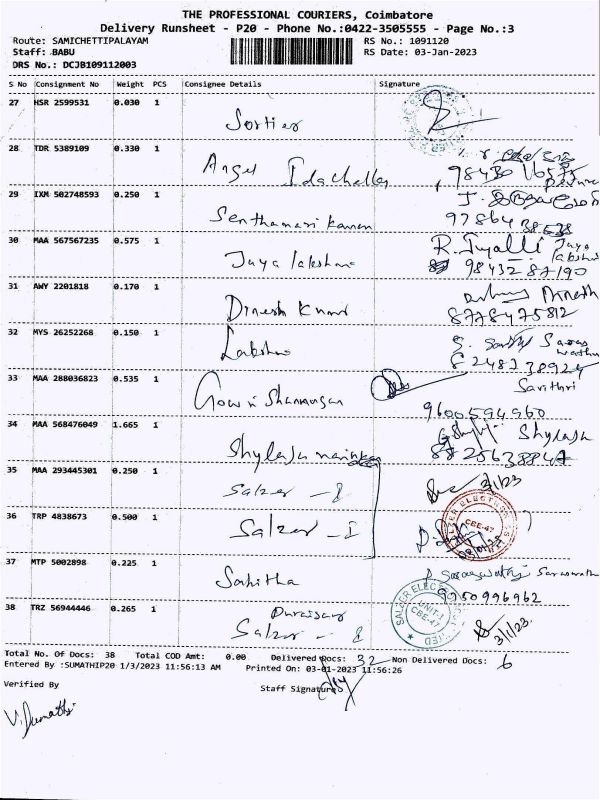 THE PROFESSIONAL COURIERS, Coimbatore
Delivery Runsheet - P20 - Phone No.:0422-3505555 - Page No.:3
Route: SAMICHETTIPALAYAM RS No.: 1091120
Staff: BABU RS Date: 03-Jan-2023
DRS No.: DCJB109112003
S No Consignment No Weight PCS Consignee Details Signature
27 HSR 2599531 0.030 1
28 TDR 5389109 0.330 1 Angel
29 IXM 502748593 0.250 1
97864 38538
30 MAA 567567235 0.575 1 Jaya lakshmi R. Jaya
98432 87190
31 AWY 2201818 0.170 1 Dinesh Kumar Dinesh
8778475812
32 MYS 26252268 0.150 1
33 MAA 288036823 0.535 1 Gowri Shanmugan Savithri
9600594960
34 MAA 568476049 1.665 1 Shylaja Shylaja
35 MAA 293445301 0.250 1 Salzer - I 3/1/23
36 TRP 4838673 0.500 1 Salzer - I SALZER ELECTRONICS CBE-47
37 MTP 5002898 0.225 1 Sahitha
9750996962
38 TRZ 56944446 0.265 1 Duraisamy
Salzer - I SALZER ELECTRONICS LIMITED UNIT-I CBE-47 3/1/23
Total No. Of Docs: 38 Total COD Amt: 0.00 Delivered Docs: 32 Non Delivered Docs: 6
Entered By :SUMATHIP20 1/3/2023 11:56:13 AM Printed On: 03-01-2023 11:56:26
Verified By Staff Signature
V. Sumathi